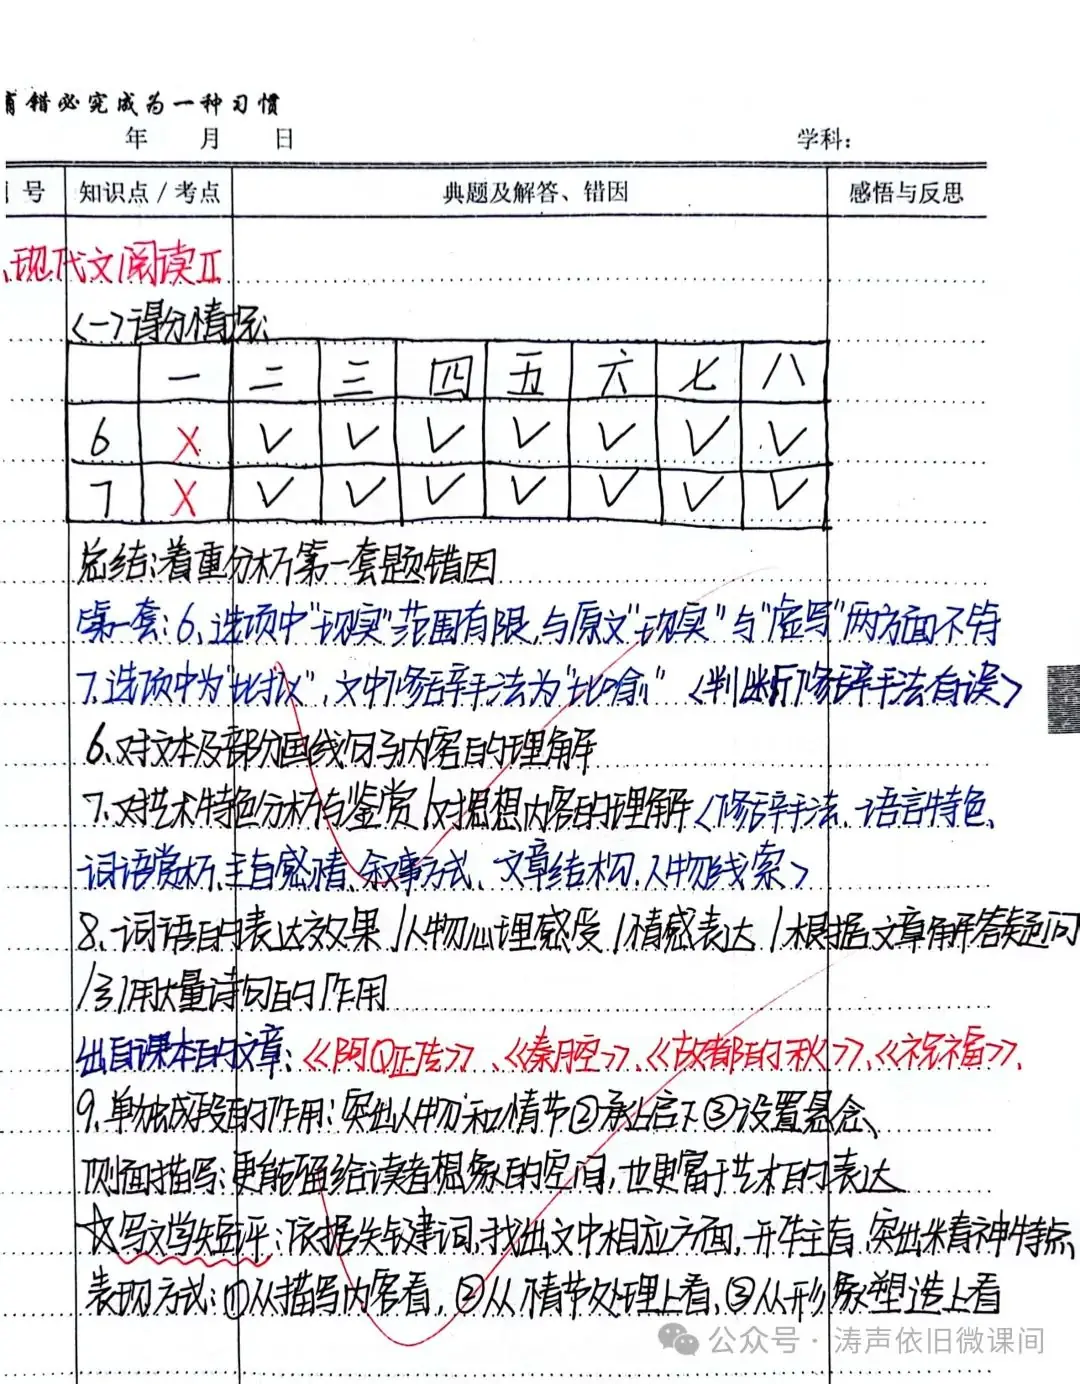 有错必究成为一种习惯
年 月 日 学科:
号 知识点/考点 典题及解答、错因 感悟与反思
、现代文阅读Ⅱ
<一>得分情况:
一 二 三 四 五 六 七 八
6 X ✓ ✓ ✓ ✓ ✓ ✓ ✓
7 X ✓ ✓ ✓ ✓ ✓ ✓ ✓
总结:着重分析第一套题错因
第一套:6、选项中"现实"范围有限,与原文"现实"与"虚写"两方面不符
7、选项中为"比拟",文中修辞手法为"比喻"<判断修辞手法有误>
6、对文本及部分画线句子内容的理解
7、对艺术特色分析与鉴赏/对思想内容的理解<修辞手法、语言特色、
词语赏析、主旨感情、叙事方式、文章结构、人物线索>
8、词语的表达效果/人物心理感受/情感表达/根据文章解答疑问
/引用大量诗句的作用
出自课本的文章:《阿Q正传》、《秦腔》、《故都的秋》、《祝福》、
9、单独成段的作用:突出人物和情节②承上启下③设置悬念、
侧面描写:更能强给读者想象的空间,也更富于艺术的表达
☆写文学短评:依据关键词,找出文中相应方面,开牛主旨,突出精神特点、
表现方式:①从描写内容看,②从情节处理上看,③从形象塑造上看
公众号·涛声依旧微课间